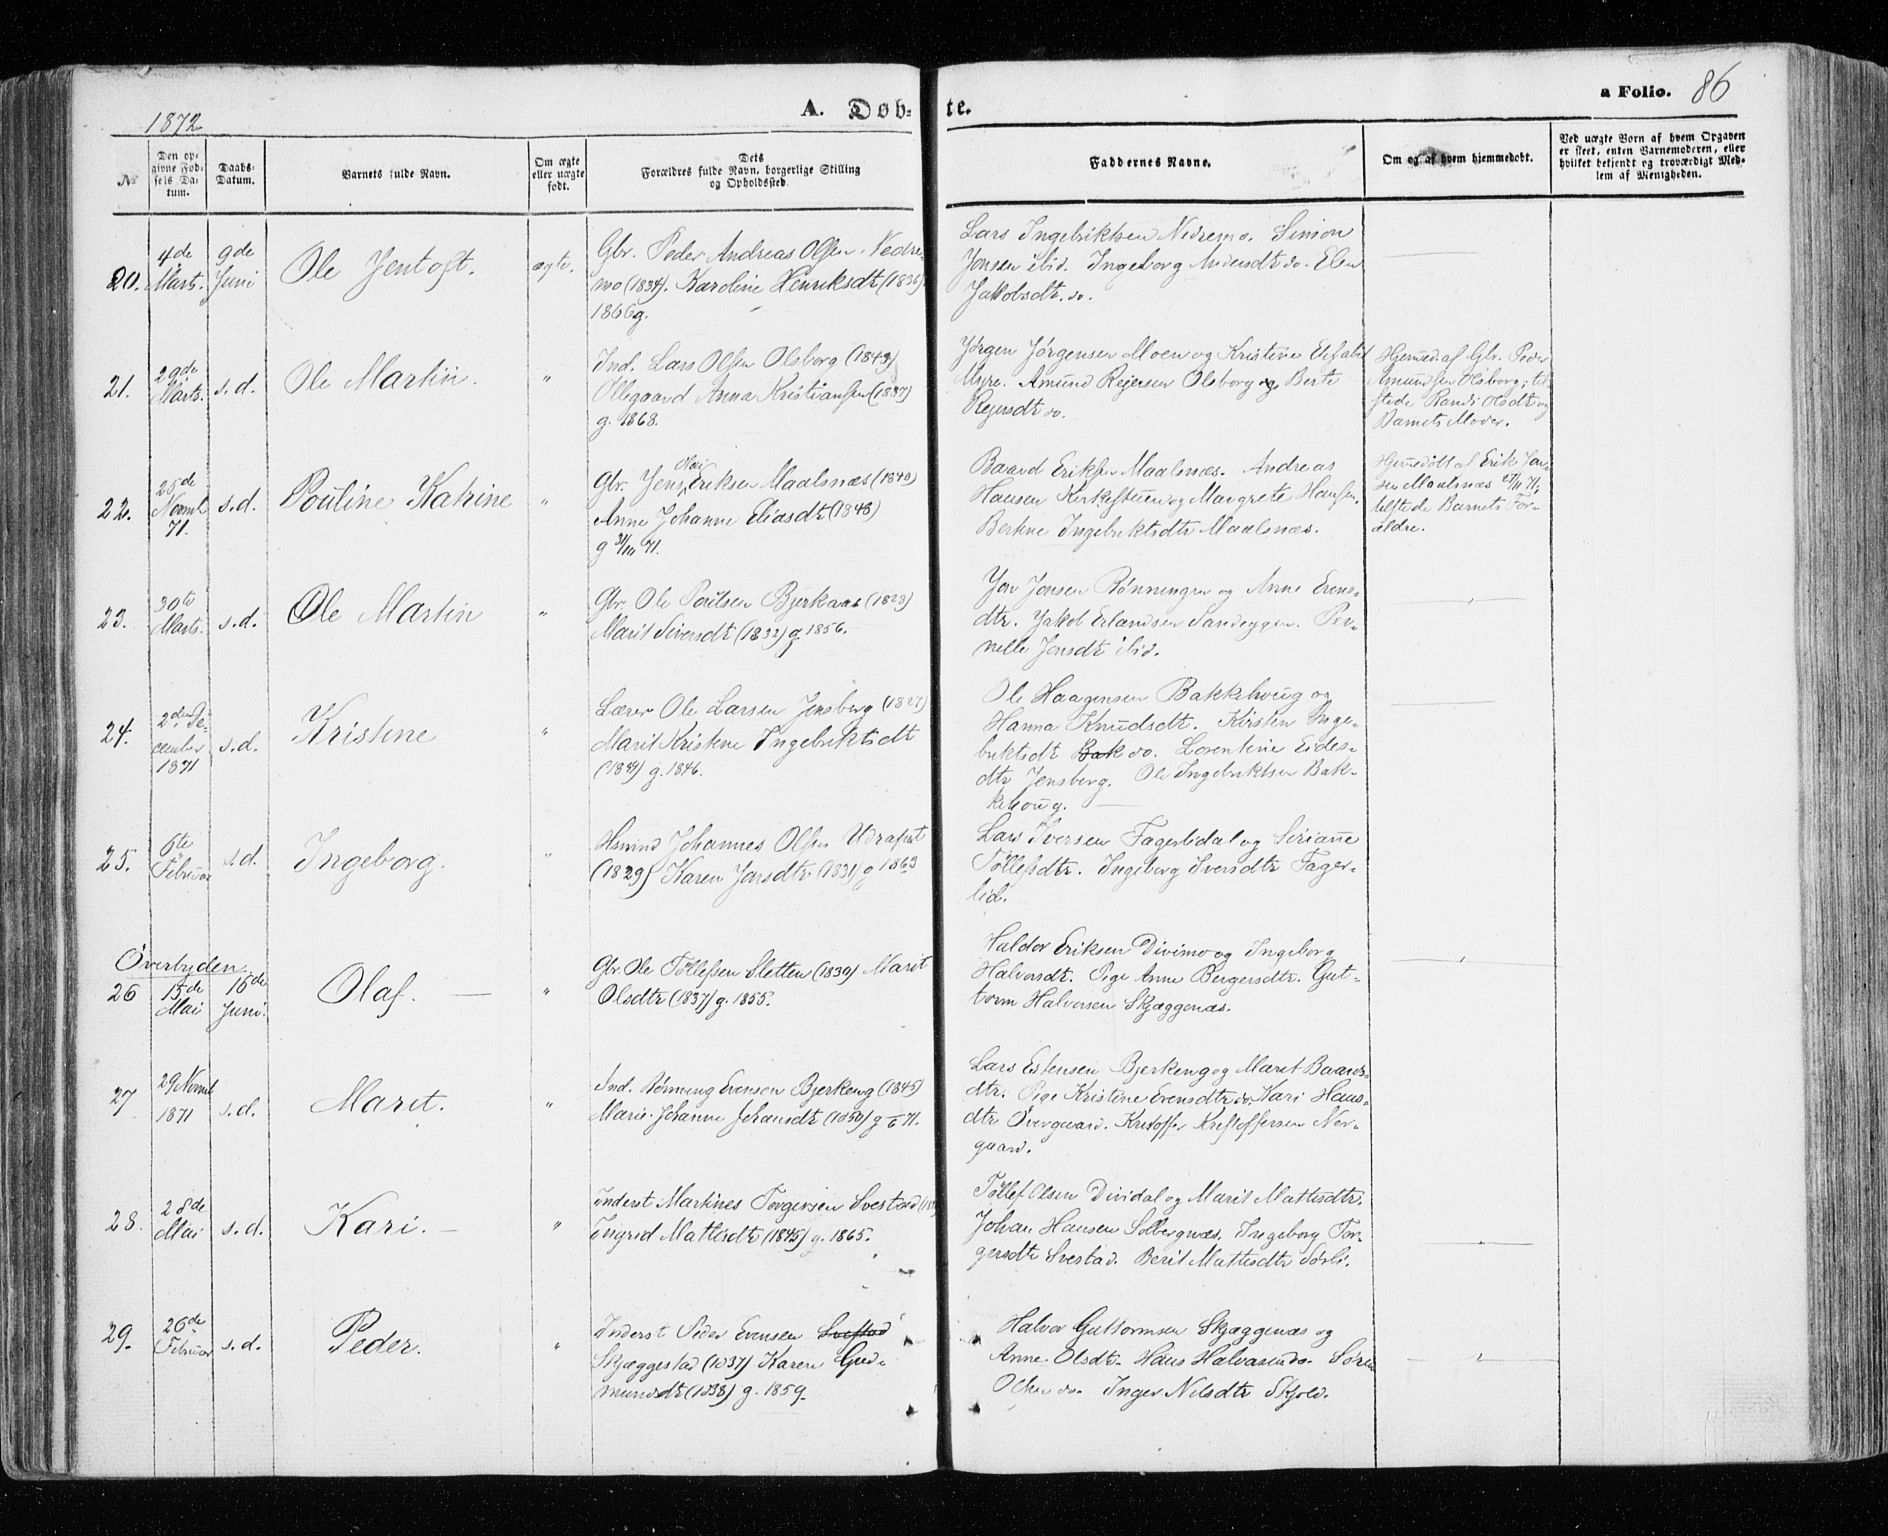 1872
A. Døb-
te.
a Folio. 86
№
Den op-
givne Fød-
sels Da-
tum.
Daabs-
Datum.
Barnets fulde Navn.
Om ægte
eller uægte
født.
Dets
Forældres fulde Navn, borgerlige Stilling
og Opholdssted.
Faddernes Navne.
Om og af hvem hjemmedøbt.
Ved uægte Børn af hvem Opgaven
er skeet, enten Barnemoderen, eller
hvilket bekjendt og troværdigt Med-
lem af Menigheden.
20.
4de
Marts.
9de
Juni
Ole Jentoft.
ægte.
Gbr. Peder Andreas Olsen Nedre
mo (1834). Karoline Henriksdt (1836)
1866 g.
Lars Ingebriktsen Nedremo. Simon
Jonsen ibid. Ingeborg Andersdt do. Elen
Jakobsdt. do.
21.
29de
Marts.
s.d.
Ole Martin.
"
Ind. Lars Olsen Olsborg (1843)
Ollegaard Anna Kristiansen (1837)
g. 1868.
Jørgen Jørgensen Moen og Kristine
Myre. Amund Reiersen Olsborg og Berte
Reiersdt do.
Hjemmed. af Gbr. Peder
Amundsen Olsborg; til
stede Randi Olsdt og
Barnets Moder.
22.
25de
Novmb
71.
s.d.
Pouline Katrine
"
Gbr. Jens Eriksen Maalsnæs (1840)
Anne Johanne Eliasdt (1848)
g 31/10 71.
Baard Eriksen Maalsnæs. Andreas
Hansen Kirkestuen og Margrete Hansen.
Berthe Ingebriktsdtr Maalsnæs.
Hjemmedøbt af Erik Jon-
sen Maalsnæs 27/11 71,
tilstede Barnets For-
ældre.
23.
30te
Marts.
s.d.
Ole Martin
"
Gbr. Ole Poulsen Bjerkaas (1828)
Marit Siversdt (1832) g 1856.
Jon Jonsen Rønningen og Anne Evens-
dtr. Jakob Erlandsen Sandeggen. Per-
nelle Jonsdt ibid.
24.
2den De-
cember
1871
s.d.
Kristine
"
Lærer Ole Larsen Jensberg (1827)
Marit Kristine Ingebriktsdt
g. 1846.
Ole Haagensen Bakkehoug og
Hanna Knudsdt. Kirsten Inge-
briktsdt Bak do. Lorentine Eides-
dtr Jensberg. Ole Ingebriktsen Bak-
kehoug.
25.
6te
Februar
s.d.
Ingeborg.
"
Husmd Johannes Olsen
(1829) Karen Jonsdtr (1831) g 1863
Lars Iversen Fagerlidal og Seriane
Tollefsdtr. Ingeborg Iversdtr Fager-
lid.
Øverbyden
26
15de
Mai
16de
Juni.
Olaf.
"
Gbr. Ole Tollefsen Sletten (1830) Marit
Olsdtr (1837) g. 1855.
Haldor Eriksen Divimo og Ingeborg
Halvorsdt. Pige Anne Bergersdtr. Gut-
torm Halvorsen Skjæggenæs.
27
29 Novmb
1871
s.d.
Marit.
"
Ind. Henning Evensen Bjerkeng (1845)
Marie Johanne Johansdt (1850) g 71.
Lars Estensen Bjerkeng og Marit Baards-
dtr. Pige Kristine Evensdtr do. Kari Hans-
dtr Øvergaard. Kristoffer Kristoffersen Nor-
gaard.
28.
28de
Mai
s.d.
Kari.
"
Inderst Martines Torgersen Svestad
Ingrid Mattisdtr (1845) g. 1865.
Tollef Olsen Dividal og Marit Mattisdtr.
Johan Hansen Solbergnæs. Ingeborg Tor-
gersdtr Svestad. Berit Mattisdtr Sørli.
29.
26de
Februar
s.d.
Peder.
"
Inderst Peder Evensen Svestad
Skjæggestad (1837) Karen Gud-
mundsdt (1838) g. 1859.
Halvor Guttormsen Skjæggenæs og
Anne Olsdt. Hans Halvorsen do. Søren
Olsen do. Inger Nilsdtr Skjold.